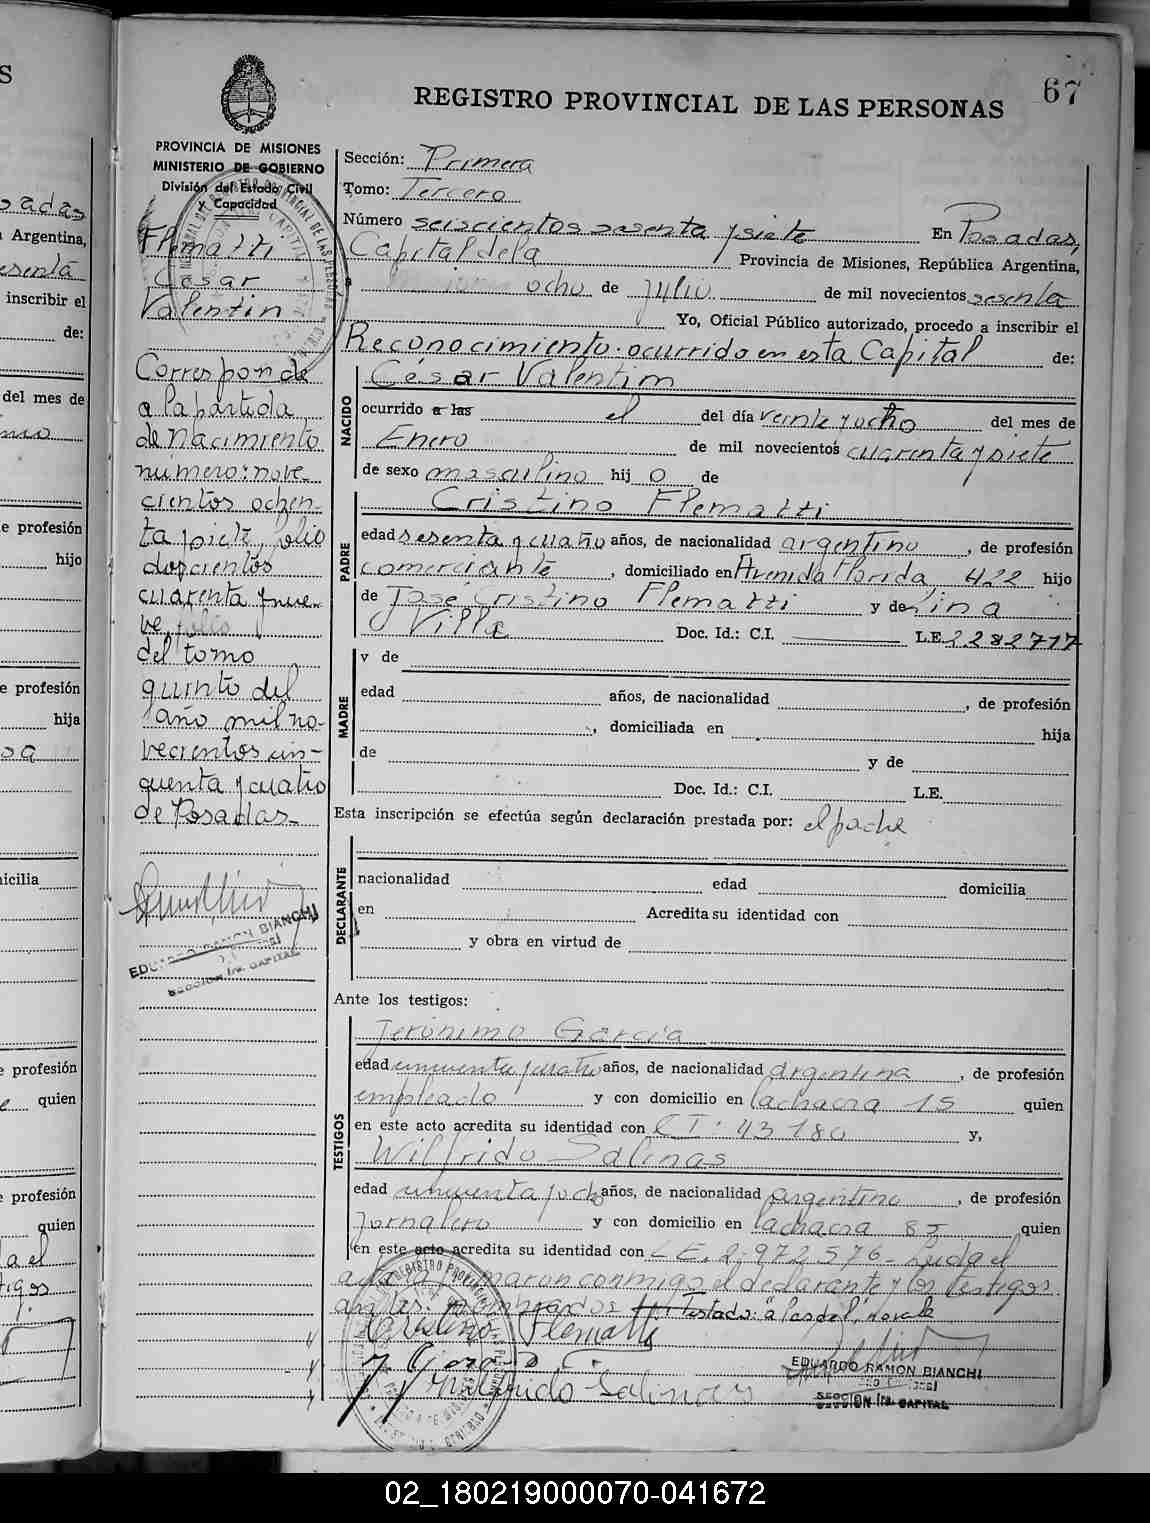 67
REGISTRO PROVINCIAL DE LAS PERSONAS
PROVINCIA DE MISIONES
MINISTERIO DE GOBIERNO
División del Estado Civil
y Capacidad
Flematti
César
Valentin
Corresponde
a la partida
de Nacimiento
número: nove-
cientos ochen-
ta y siete, folio
doscientos
cuarenta y nue-
ve
del tomo
quinto del
año mil no-
vecientos cin-
cuenta y cuatro
de Posadas-
EDUARDO RAMON BIANCHI
SECCION 1ra. CAPITAL
Sección: Primera
Tomo: Tercero
Número seiscientos sesenta y siete En Posadas,
Capital de la Provincia de Misiones, República Argentina,
a ocho de julio de mil novecientos sesenta
Yo, Oficial Público autorizado, procedo a inscribir el
Reconocimiento. ocurrido en esta Capital de:
NACIDO
César Valentim
ocurrido a las el del día veinte y ocho del mes de
Enero de mil novecientos cuarenta y siete
de sexo masculino hij o de
PADRE
Cristino Flematti
edad sesenta y cuatro años, de nacionalidad argentino, de profesión
comerciante, domiciliado en Avenida Florida 422 hijo
de José Cristino Flematti y de
Villa Doc. Id.: C.I. L.E. 2282717
MADRE
y de
edad años, de nacionalidad , de profesión
, domiciliada en hija
de y de
Doc. Id.: C.I. L.E.
Esta inscripción se efectúa según declaración prestada por: el padre
DECLARANTE
nacionalidad edad domicilia
en Acredita su identidad con
y obra en virtud de
Ante los testigos:
TESTIGOS
Jerónimo García
edad cincuenta y cuatro años, de nacionalidad argentina, de profesión
empleado y con domicilio en la chacra 15 quien
en este acto acredita su identidad con CI: 43180 y,
Wilfrido Salinas
edad cincuenta y ocho años, de nacionalidad argentino, de profesión
Jornalero y con domicilio en la chacra 85 quien
en este acto acredita su identidad con L.E. 2.972.576- Leida el
acta la firmaron conmigo el declarante y los testigos
antes nombrados Testado: "a las del", no vale
Flematti
Wilfrido Salinas
EDUARDO RAMON BIANCHI
SECCION 1ra. CAPITAL
S
Posadas
Argentina,
esenta
inscribir el
de:
del mes de
e profesión
hijo
e profesión
hija
icilia
e profesión
quien
e profesión
quien
02_180219000070-041672